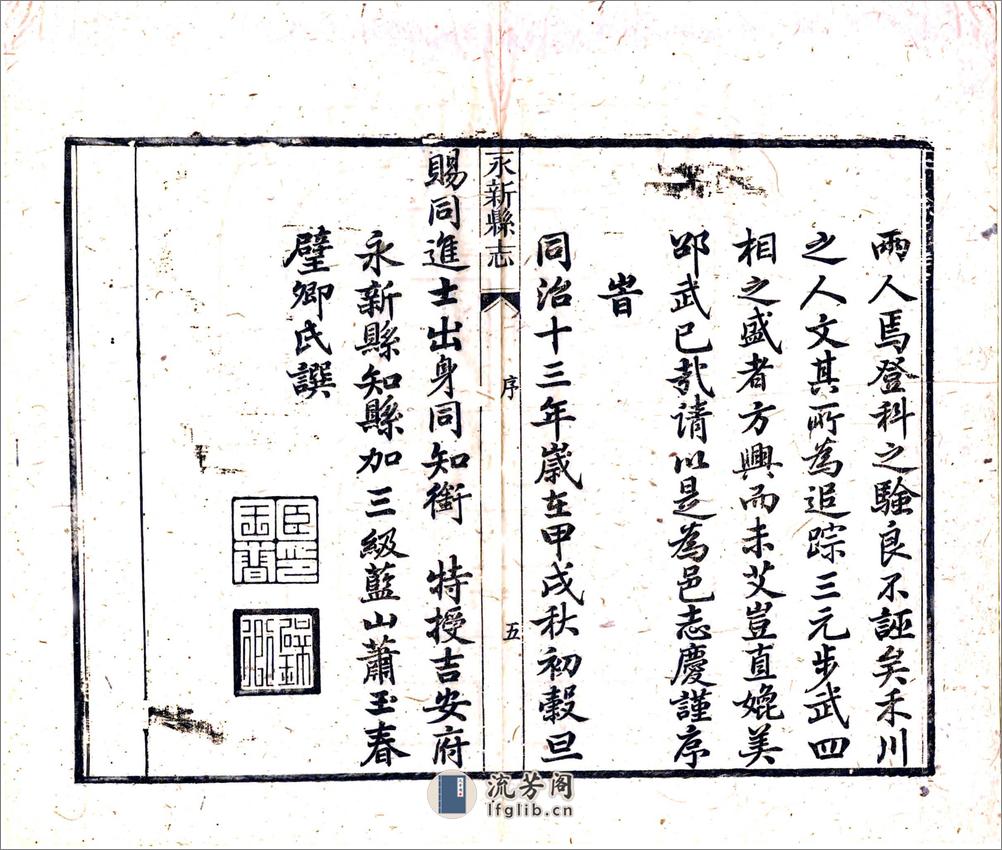 兩人焉登科之驗良不誣矣禾川
之人文其所為追踪三元步武四
相之盛者方興而未艾豈直媲美
邵武已哉請以是為邑志慶謹序
旹
同治十三年歲在甲戌秋初穀旦
永新縣志
序
五
賜同進士出身同知銜 特授吉安府
永新縣知縣加三級藍山蕭玉春
璧卿氏譔
臣印玉春
璧卿
流芳阁
lfglib.cn